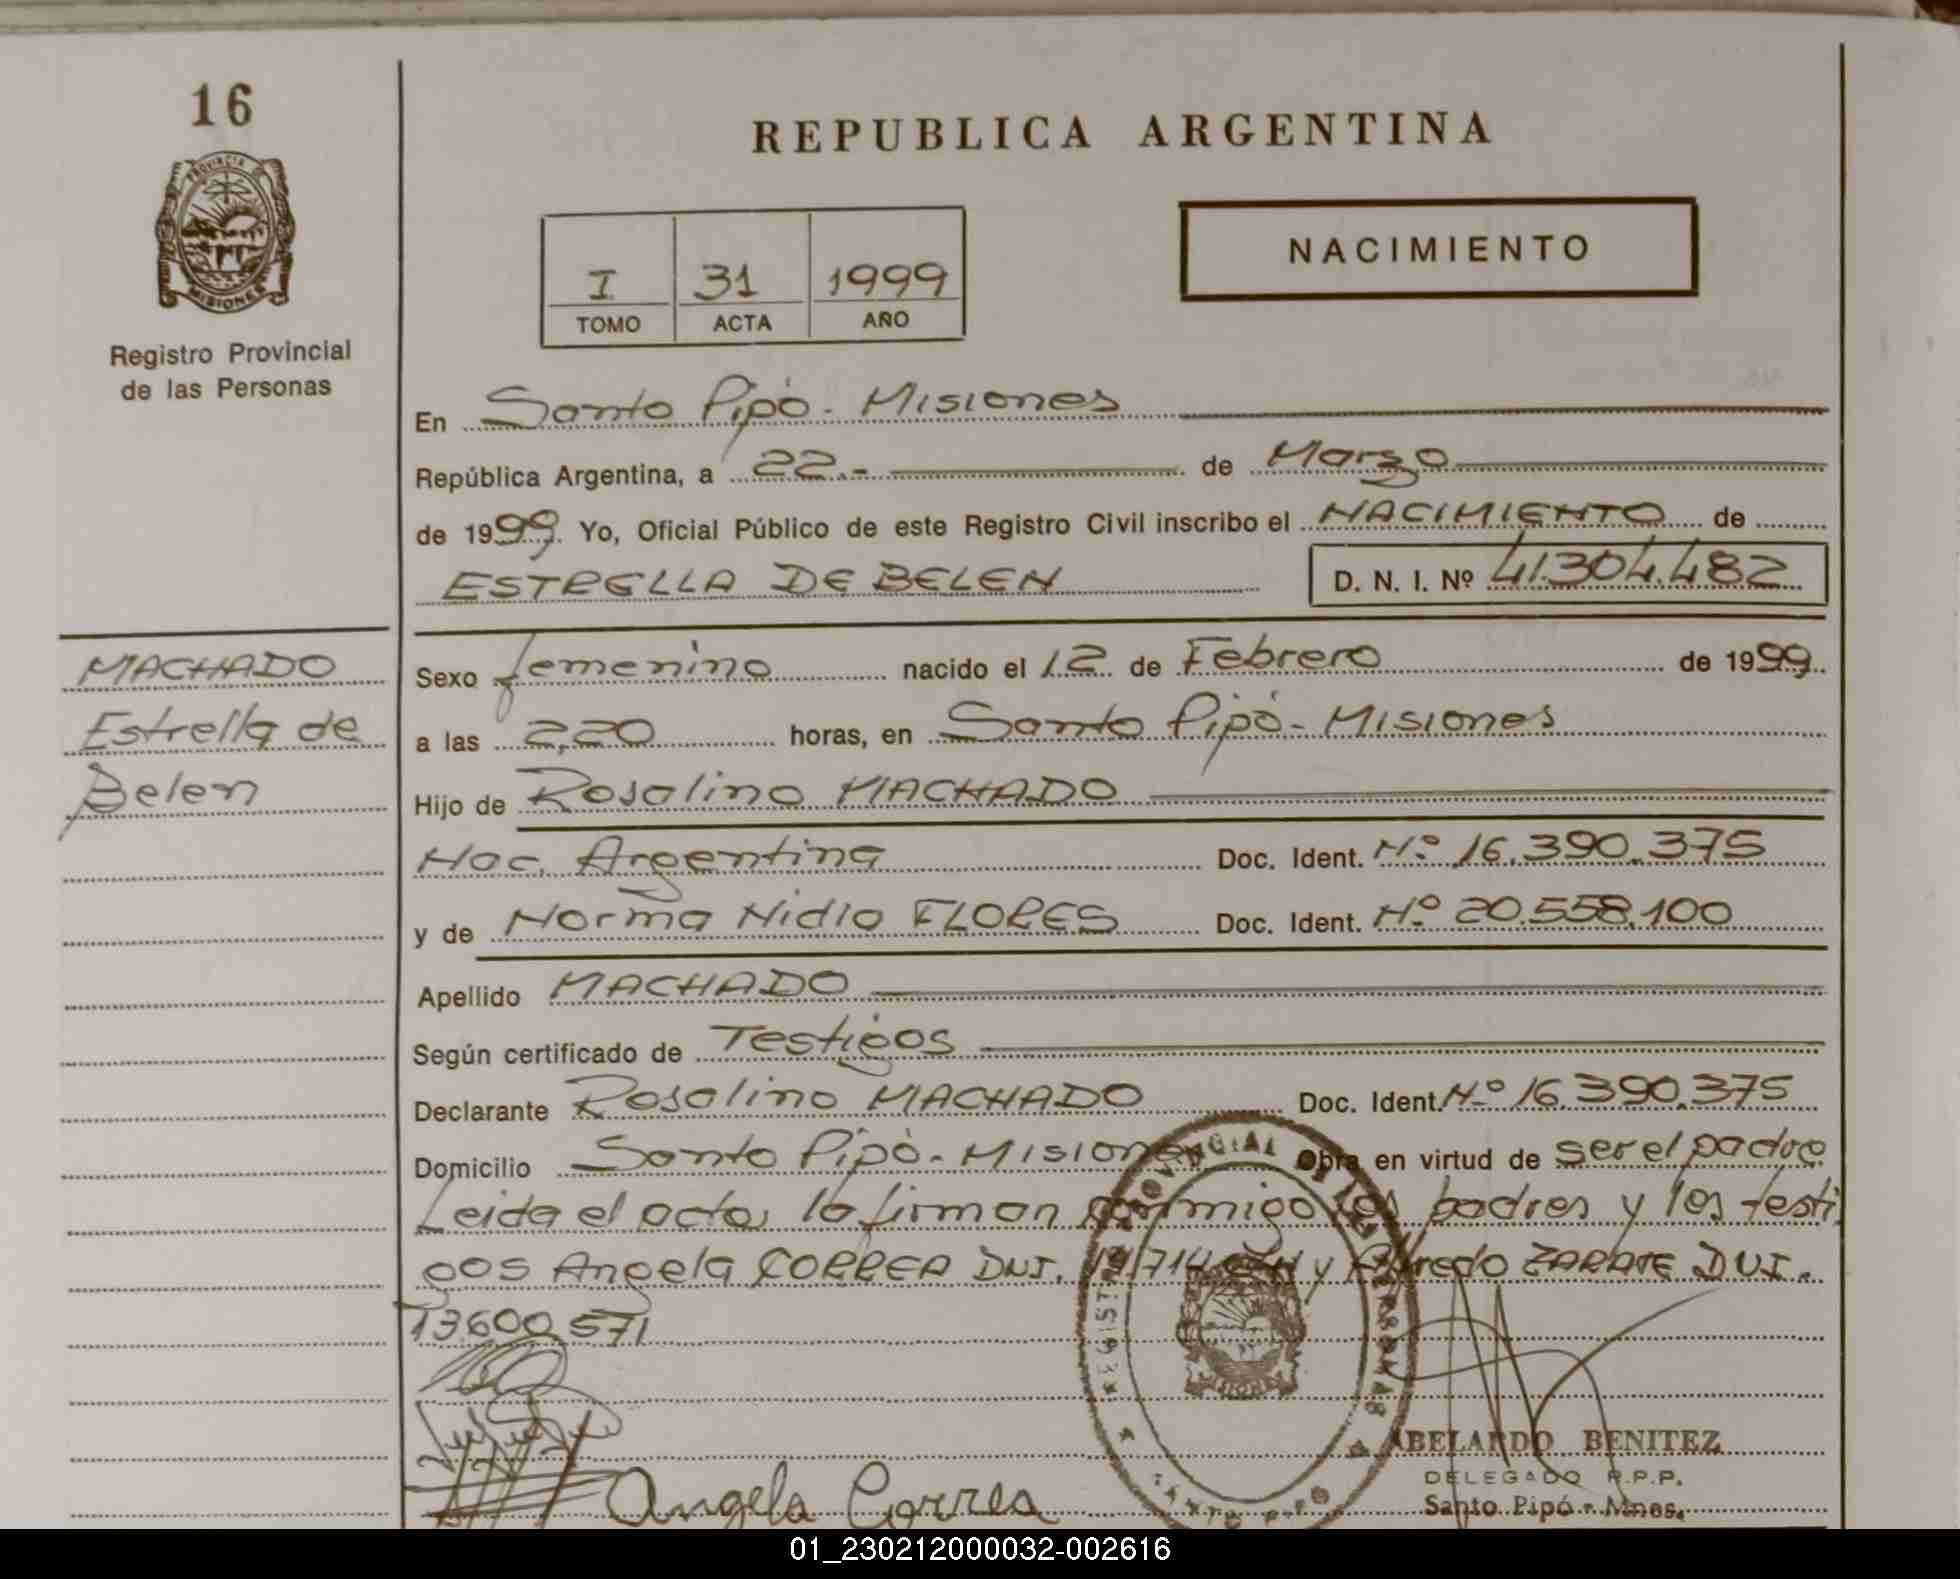 16
PROVINCIA D
MISIONES
Registro Provincial
de las Personas
MACHADO
Estrella de
Belen
REPUBLICA ARGENTINA
I 31 1999
TOMO ACTA AÑO
NACIMIENTO
En Santo Pipó - Misiones
República Argentina, a 22.- de Marzo
de 1999. Yo, Oficial Público de este Registro Civil inscribo el NACIMIENTO de
ESTRELLA DE BELEN D. N. I. Nº 41.304.482
Sexo femenino nacido el 12 de Febrero de 1999
a las 2,20 horas, en Santo Pipó - Misiones
Hijo de Rosalino MACHADO
Nac. Argentina Doc. Ident. Nº 16.390.375
y de Norma Nidia FLORES Doc. Ident. Nº 20.558.100
Apellido MACHADO
Según certificado de Testigos
Declarante Rosalino MACHADO Doc. Ident. Nº 16.390.375
Domicilio Santo Pipó - Misiones Obra en virtud de ser el padre
Leida el acta, la firman conmigo los padres y los testi
gos Angela CORREA DNI. y Alfredo ZARATE DNI.
13.600.571
REGISTRO PROVINCIAL DE LAS PERSONAS
SANTO PIPO
Angela Correa
ABELARDO BENITEZ
DELEGADO R.P.P.
Santo Pipó - Mnes.
01_230212000032-002616